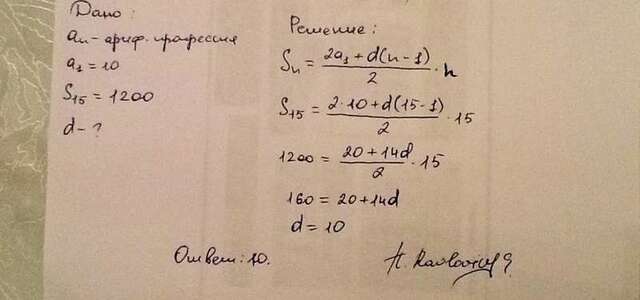 Дано:
an - ариф. прогрессия
a1 = 10
S15 = 1200
d - ?
Решение:
Sn = (2a1 + d(n-1))/2 · n
S15 = (2·10 + d(15-1))/2 · 15
1200 = (20 + 14d)/2 · 15
160 = 20 + 14d
d = 10
Ответ: 10.